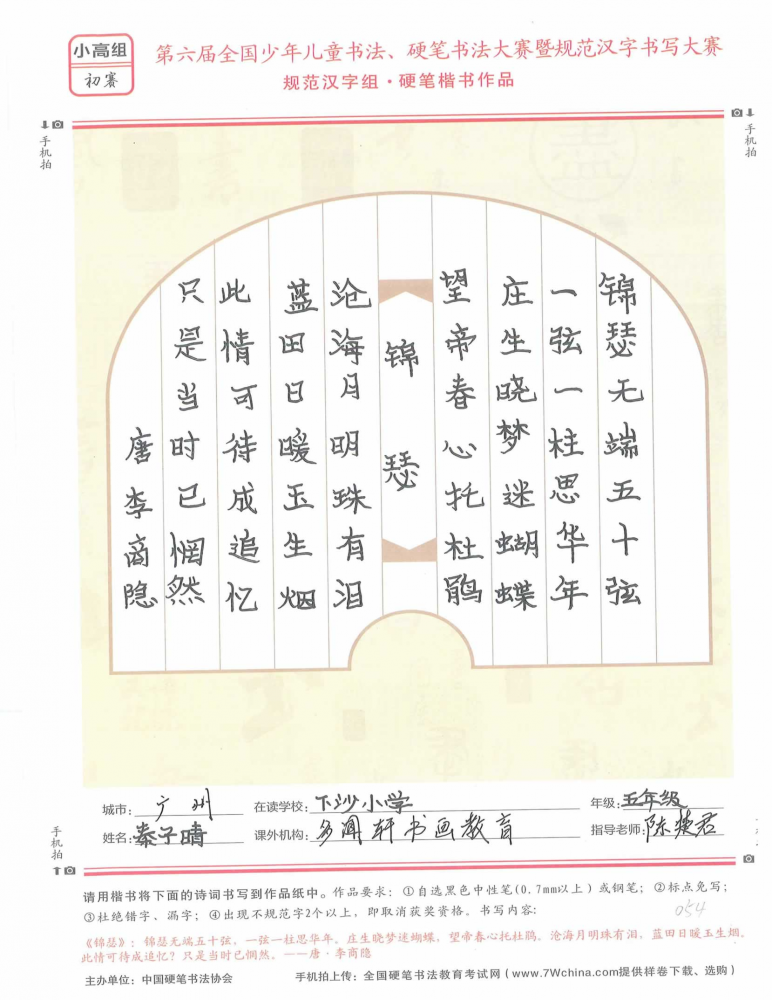 小高组
初赛
第六届全国少年儿童书法、硬笔书法大赛暨规范汉字书写大赛
规范汉字组·硬笔楷书作品
手机拍
手机拍
锦瑟无端五十弦
一弦一柱思华年
庄生晓梦迷蝴蝶
望帝春心托杜鹃
锦瑟
沧海月明珠有泪
蓝田日暖玉生烟
此情可待成追忆
只是当时已惘然
唐李商隐
城市：广州 在读学校：下沙小学 年级：五年级
姓名：秦子晴 课外机构：多闻轩书画教育 指导老师：陈楚君
手机拍
请用楷书将下面的诗词书写到作品纸中。作品要求：①自选黑色中性笔(0.7mm以上)或钢笔；②标点免写；
③杜绝错字、漏字；④出现不规范字2个以上，即取消获奖资格。书写内容：
054
《锦瑟》：锦瑟无端五十弦，一弦一柱思华年。庄生晓梦迷蝴蝶，望帝春心托杜鹃。沧海月明珠有泪，蓝田日暖玉生烟。
此情可待成追忆？只是当时已惘然。——唐·李商隐
主办单位：中国硬笔书法协会 手机拍上传：全国硬笔书法教育考试网(www.7Wchina.com提供样卷下载、选购)